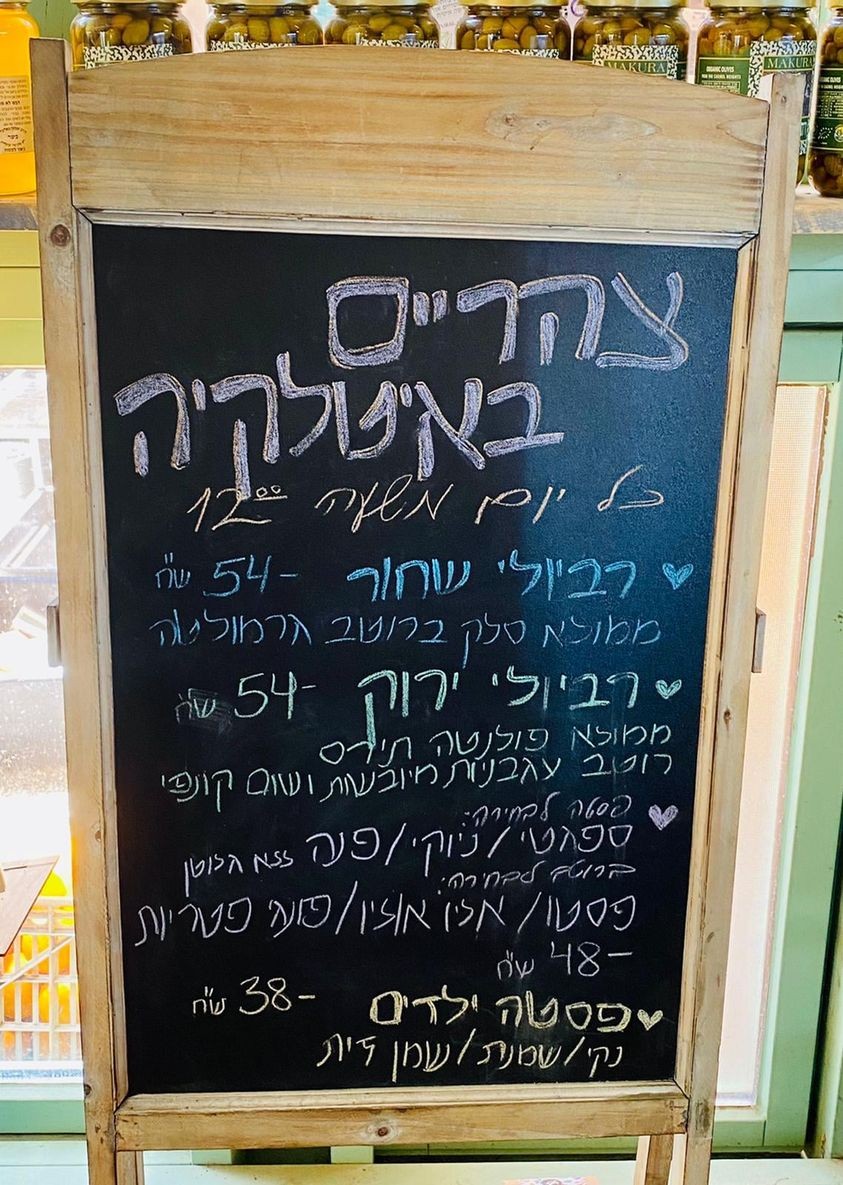 MAKURA
ORGANIC OLIVES
MAKURA
צהריים
באיטלקיה
כל יום משעה 12:00
רביולי שחור 54- ש"ח
ממולא סלק ברוטב
רביולי ירוק 54- ש"ח
ממולא פולנטה תירס
רוטב עגבניות מיובשות ושום קונפי
פסטה לבחירה:
ספגטי/ניוקי/פנה ללא גלוטן
ברוטב לבחירה:
פסטו/אליו אוליו/פונגי פטריות
48- ש"ח
פסטה ילדים 38- ש"ח
נקי/שמנת/שמן זית